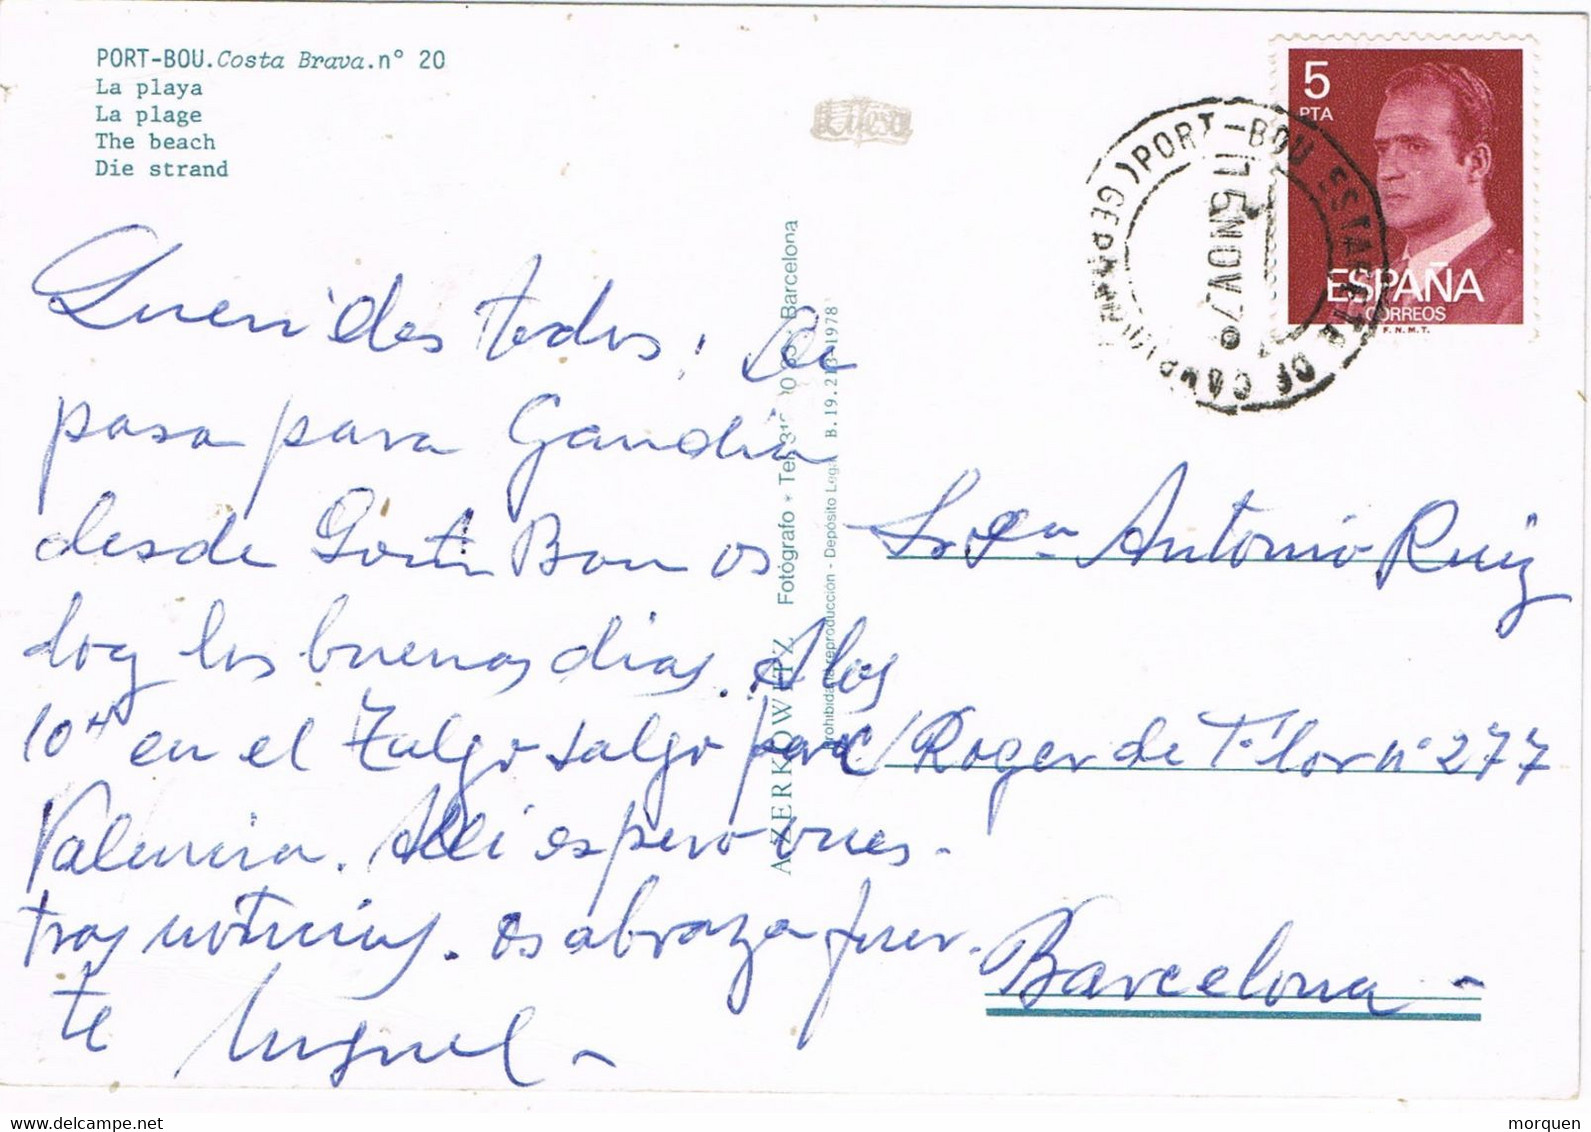 PORT-BOU. Costa Brava. n° 20
La playa
La plage
The beach
Die strand
5
PTA
ESPAÑA
CORREOS
F.N.M.T.
PORT-BOU ESTAFETA DE CAMBIO
15 NOV 7
Queridos todos: De
paso para Gandia
desde Port Bou os
doy los buenos dias. A las
10 h en el Talgo salgo para
Valencia. Alli espero vues-
tras noticias. Os abraza fuer-
te Miguel-
AZERKOWITZ Fotógrafo * Tel. Barcelona
Prohibida la reproducción - Depósito Legal B. 19. 1978
Antonio Ruiz
c/ Roger de Flor nº 277
Barcelona -
www.delcampe.net
morquen